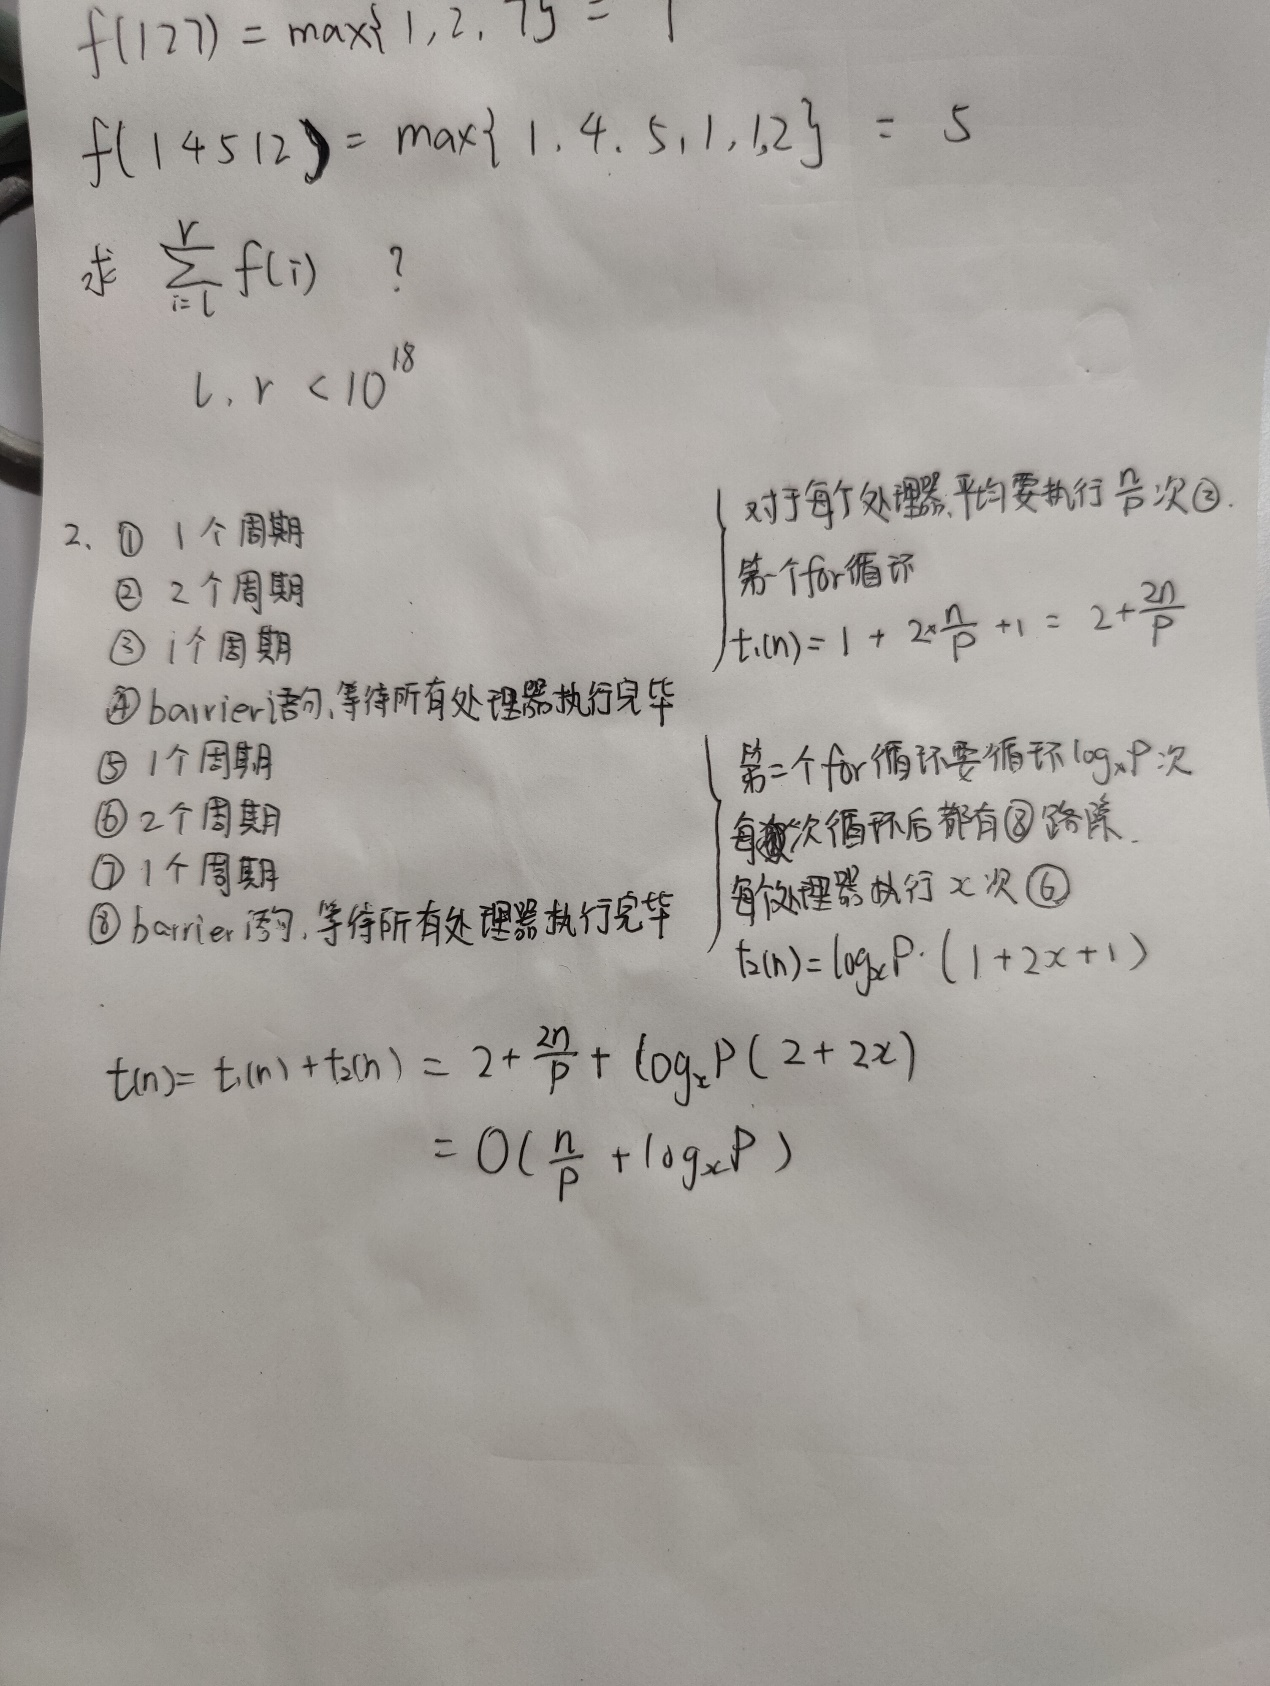 f(127) = max{1,2,7} = 7
f(14512) = max{1.4.5,1,1,2} = 5
求 ∑_{i=l}^{r} f(i) ?
l, r < 10^18
2、① 1个周期
② 2个周期
③ 1个周期
④ barrier语句,等待所有处理器执行完毕
⑤ 1个周期
⑥ 2个周期
⑦ 1个周期
⑧ barrier语句,等待所有处理器执行完毕
对于每个处理器,平均要执行 n/p 次②.
第一个for循环
t₁(n) = 1 + 2×n/p + 1 = 2 + 2n/p
第二个for循环要循环logₓP次
每次循环后都有⑧路障.
每个处理器执行x次⑥
t₂(n) = logₓP·(1+2x+1)
t(n) = t₁(n) + t₂(n) = 2 + 2n/p + logₓP(2+2x)
= O(n/p + logₓP)